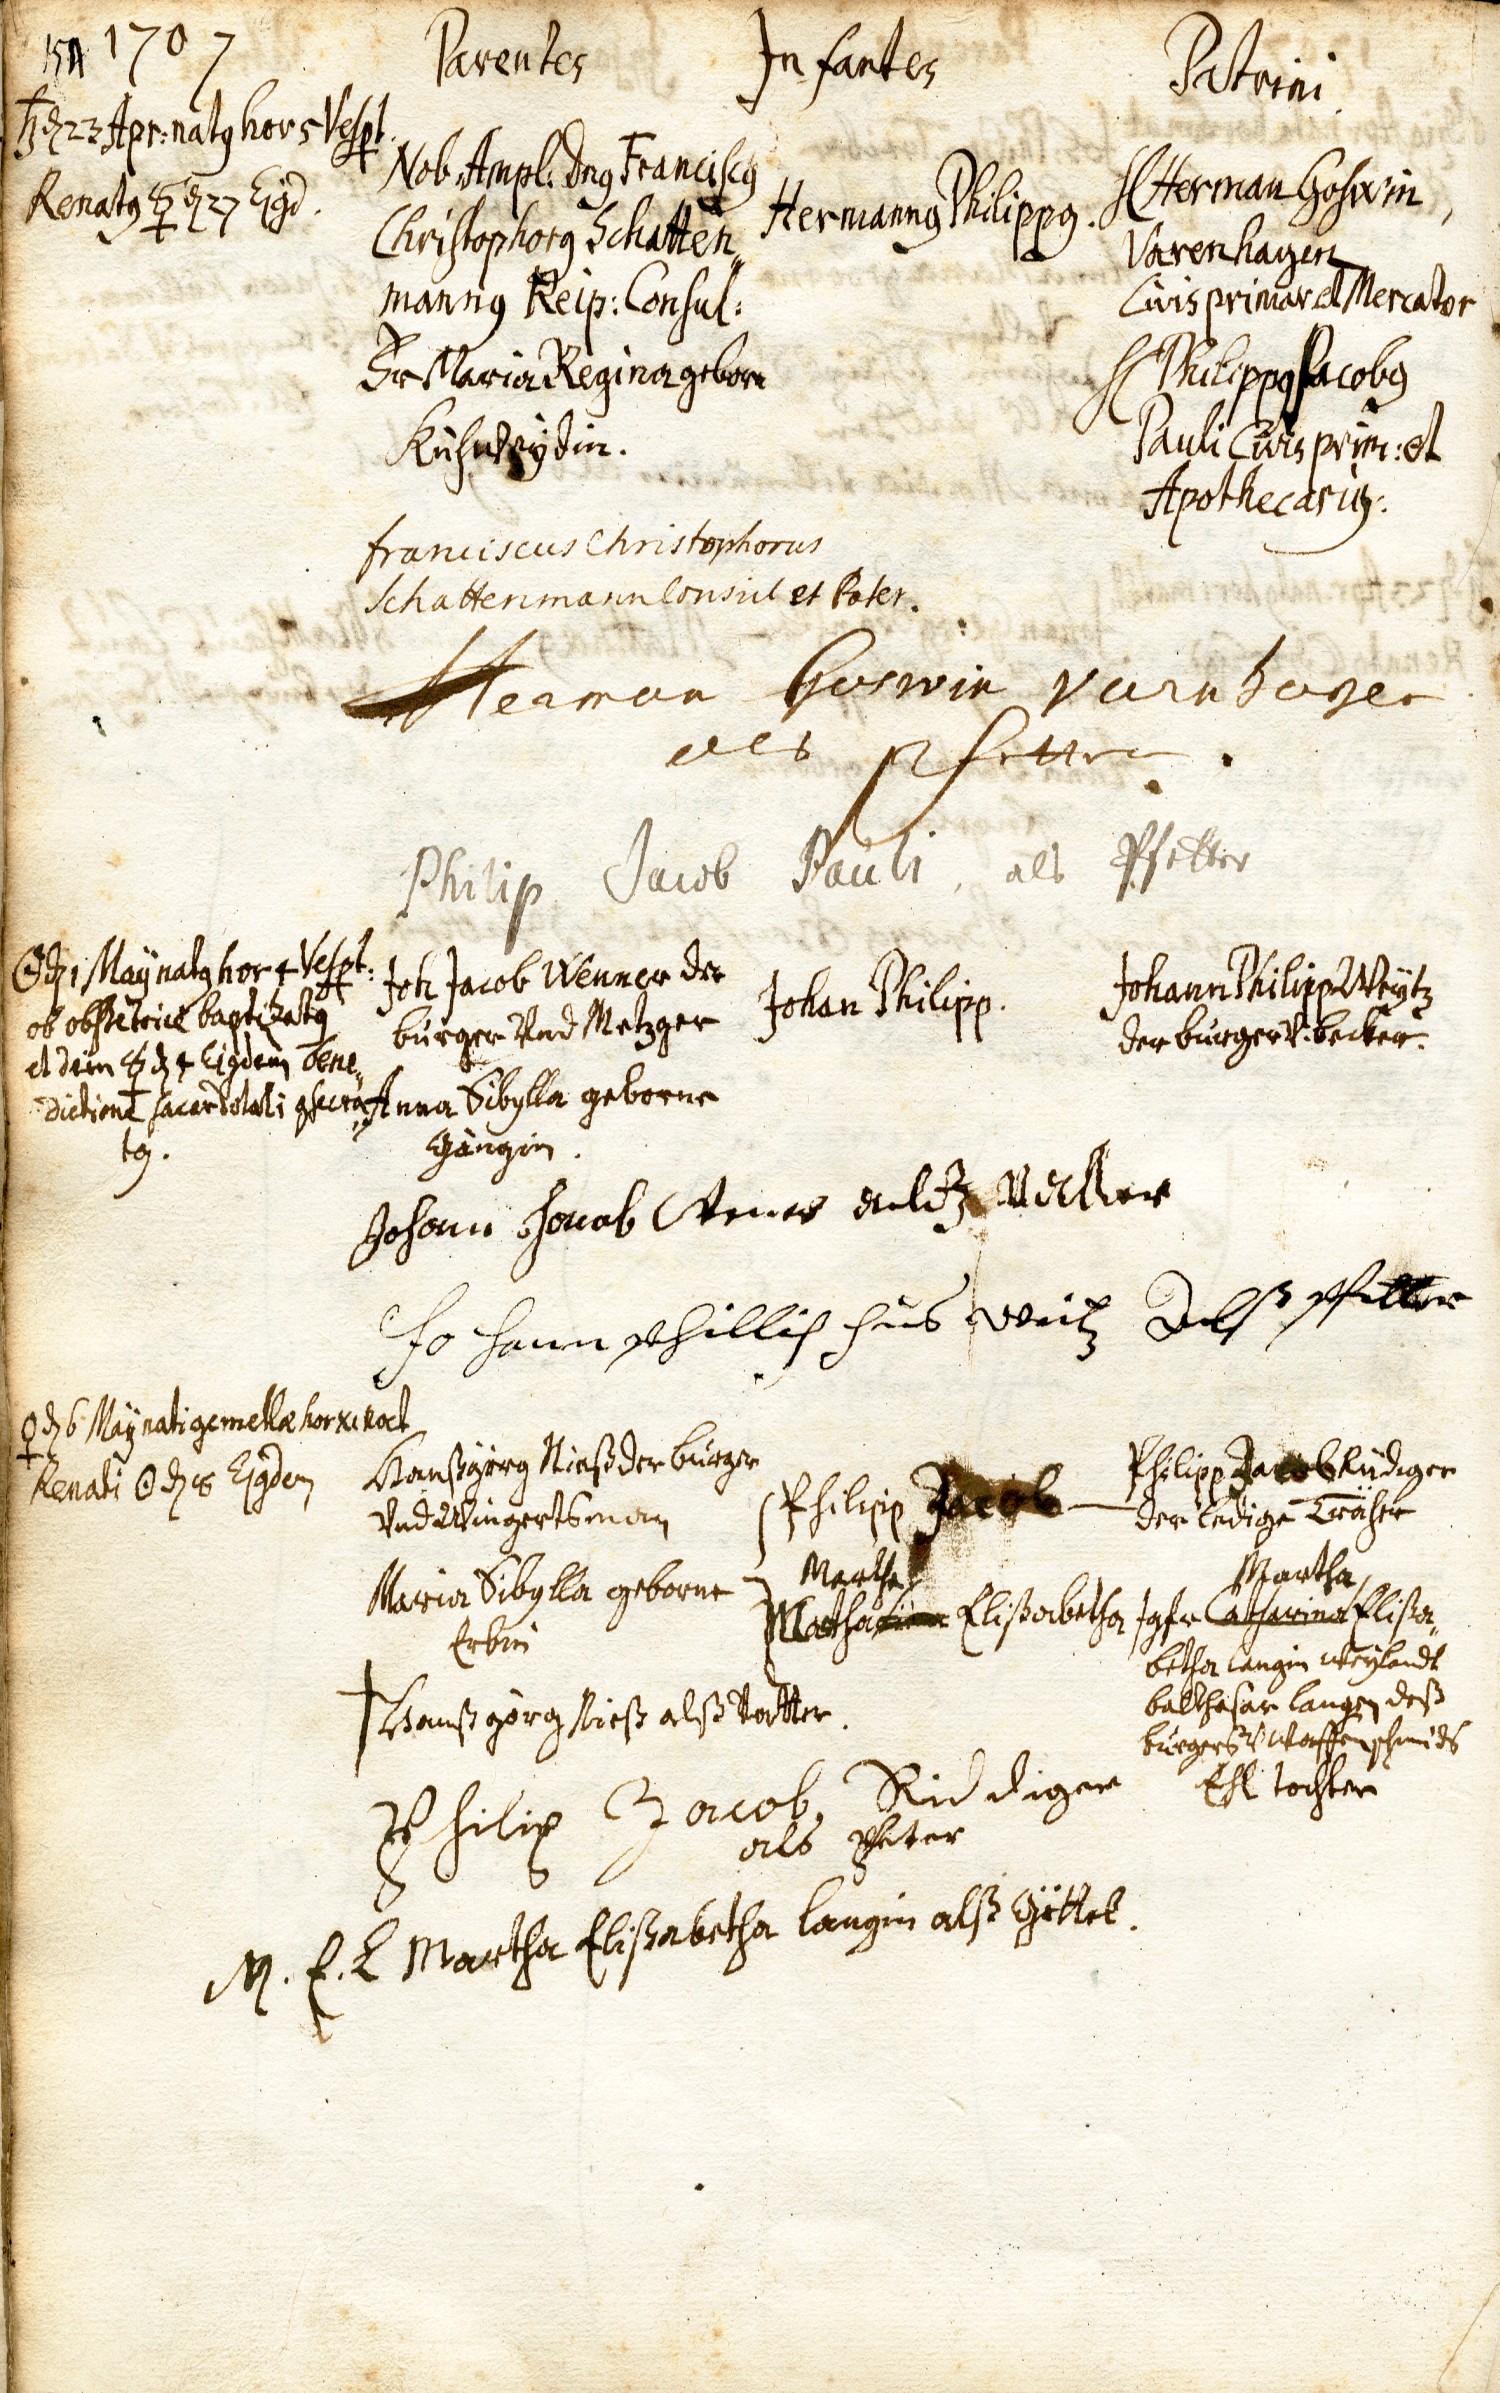 154 1707 Parentes Infantes Patrini
♄ d 23 Apr: natꝯ hor 5 Vespt.
Renatꝯ ☿ d 27 Ejgd.
Nob. Ampl: Dnꝯ Franciscꝯ
Christophorꝯ Schatten„
mannꝯ Reip: Consul:
Fr Maria Regina geborn
Kuhweydin.
Hermannꝯ Philippꝯ.
H Herman Goswin,
Varenhagen
Civis primar et Mercator
H Philippꝯ Jacobꝯ
Pauli Civis prim: et
Apothecariꝯ:
franciscus Christophorus
Schattenmann Consul et Pater.
Herman Goswin Varnhagen
als Pfetter.
Philip Jacob Pauli, als Pfetter
☉ d 1 Maÿ natꝯ hor 4 Vespt:
ob obstetrice baptizatꝯ
et dein ☿ d 4 Ejgdem bene„
dictione sacerdotali ꝯsecra„
tꝯ.
Joh Jacob Wenner der
burger Vnd Metzger
Anna Sibylla geborne
Gängin.
Johan Philipp.
Johann Philipp Weytz
der burger V. becker.
Johann Jacob Wener alß Vatter
Johann Philliphus Weitz Alß Pfetter
♀ d 6 Maÿ nati gemellæ hor XI noct
Renati ☉ d 8 Ejgdem
Hanßgörg Nieß der burger
Vnd Wingertsman
Maria Sibylla geborne
Erbin
Philipp Jacob
Martha
Martha Elisabetha
Philipp Jacob Rüdiger
der ledige
Martha
Jgfr Catharina Elisa„
betha Langin Weylandt
balthasar Langen deß
burgers V Waffenschmids
Ehl tochter
Hanß görg Nieß alß Vatter.
Philip Jacob Riddiger
als Peter
M. E. L Martha Elisabetha Langin alß Göttel.